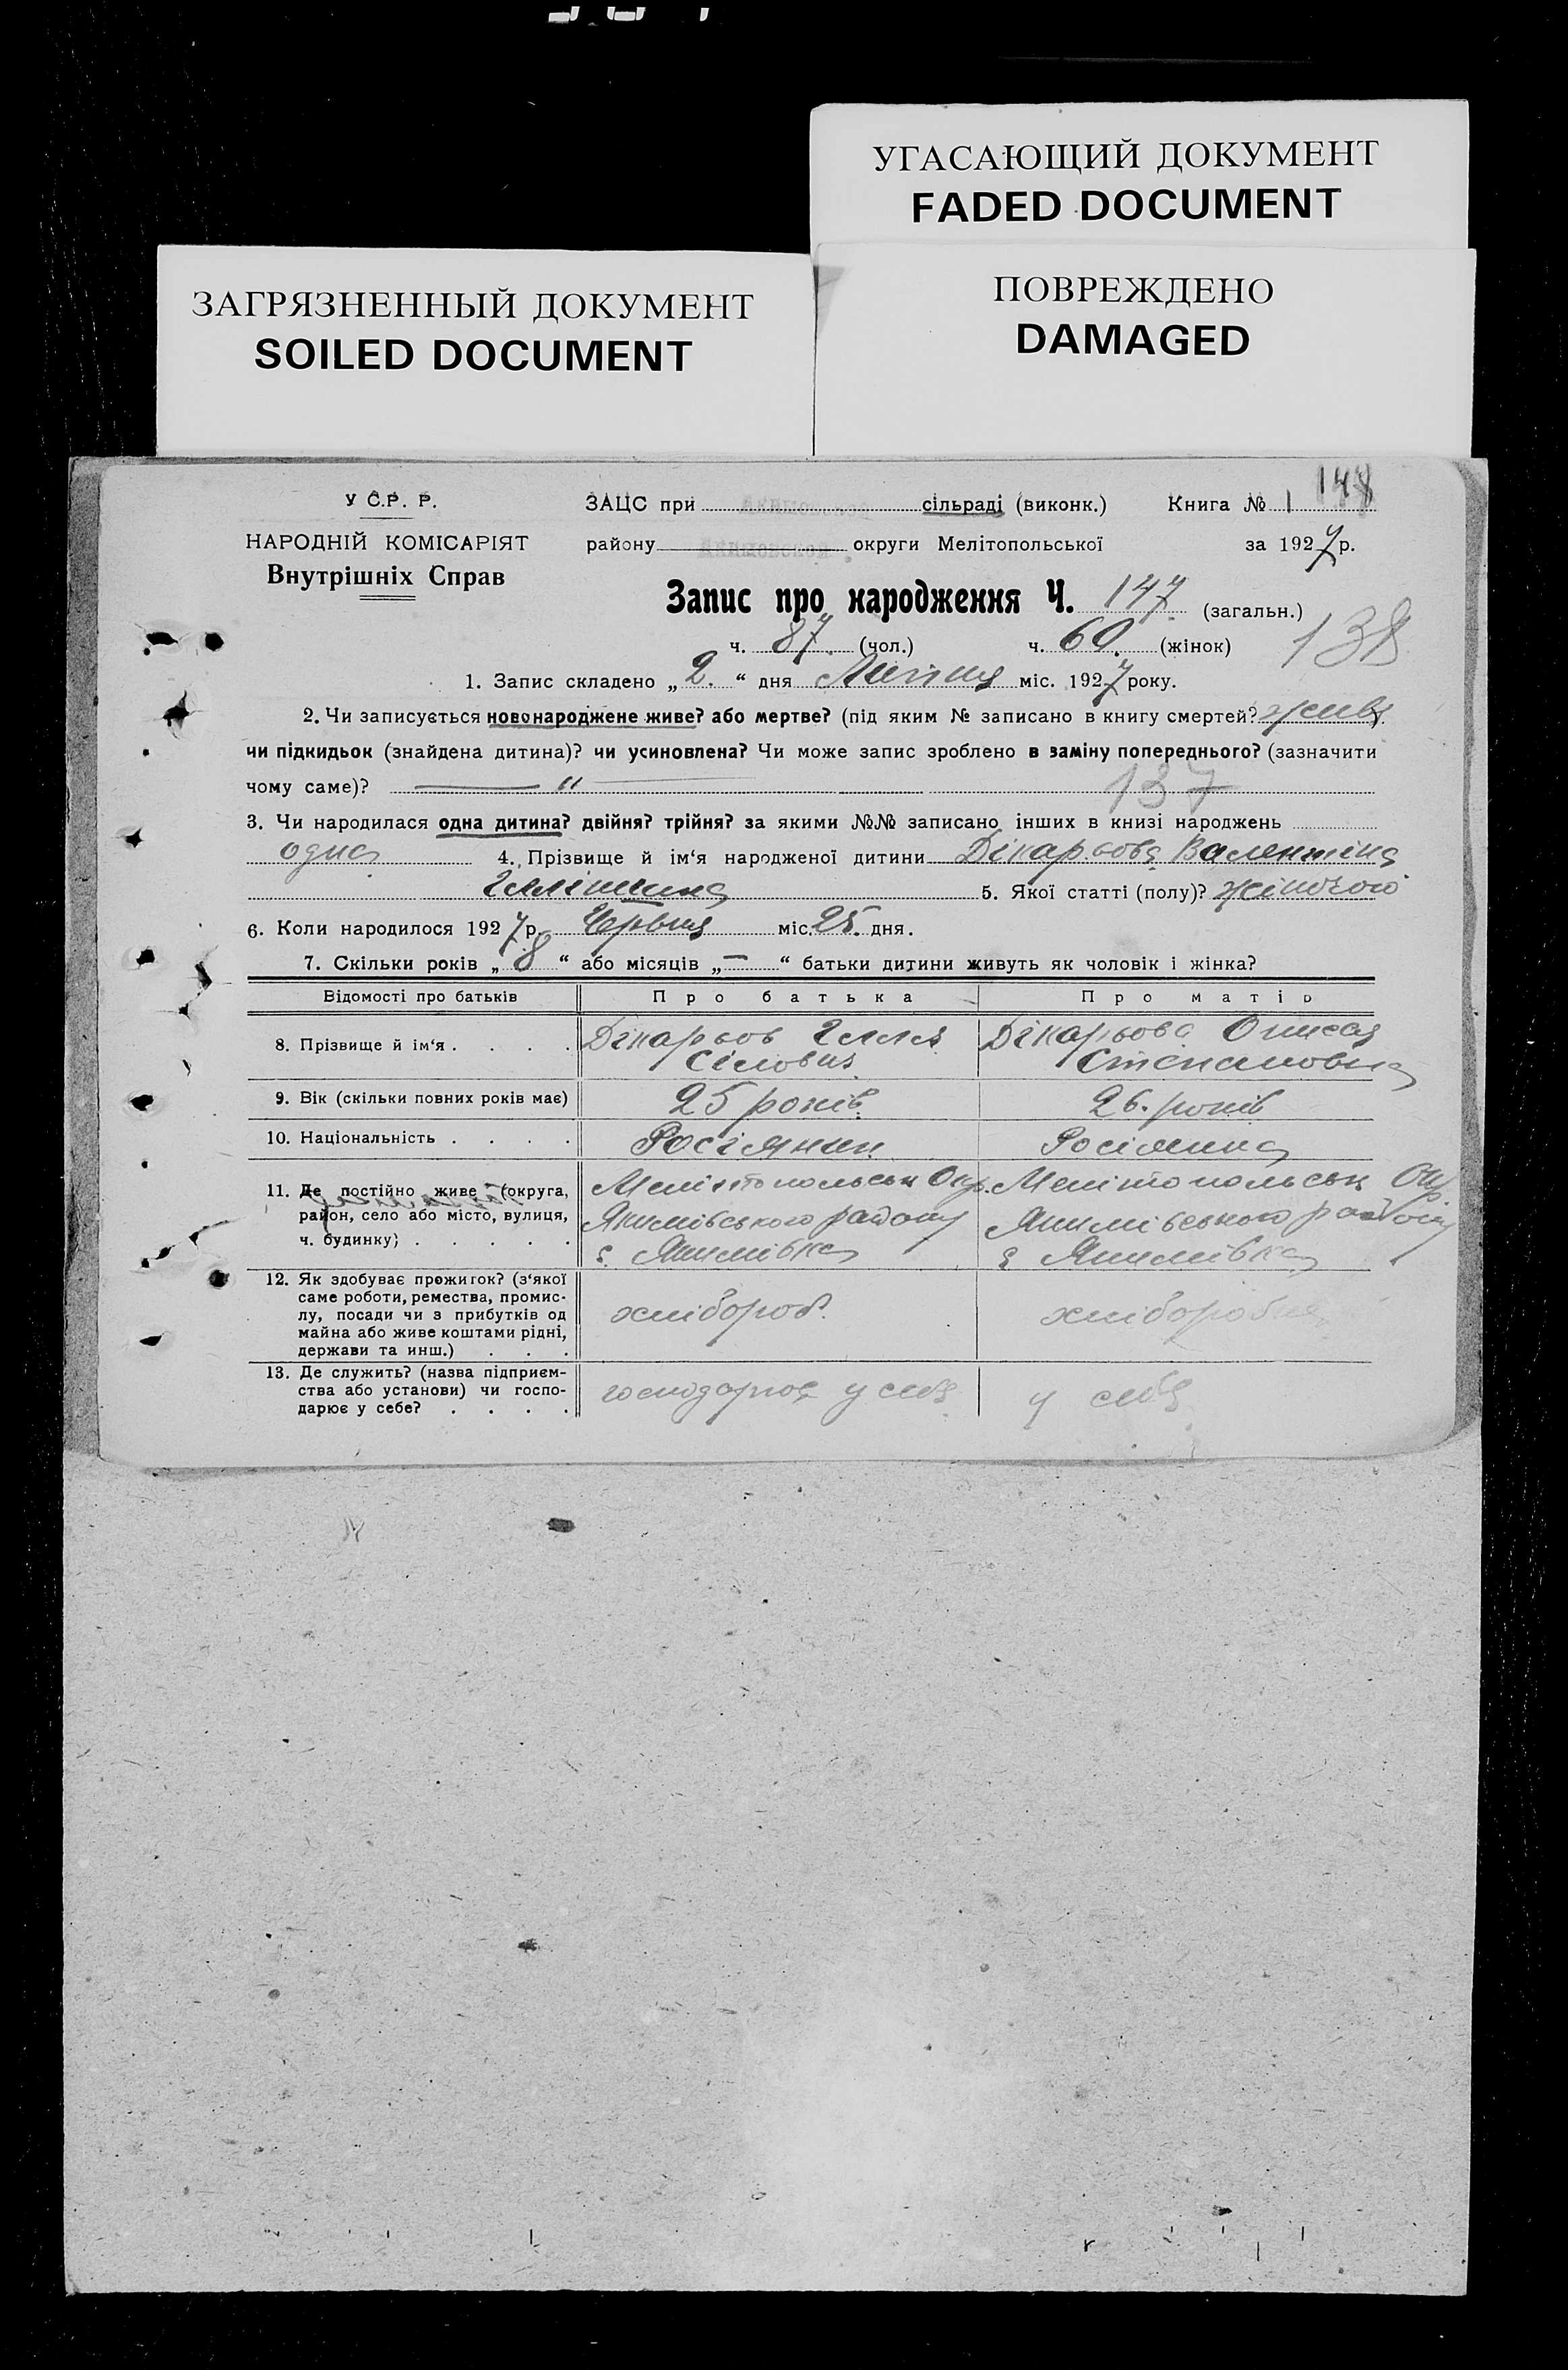 УГАСАЮЩИЙ ДОКУМЕНТ
FADED DOCUMENT
ЗАГРЯЗНЕННЫЙ ДОКУМЕНТ
SOILED DOCUMENT
ПОВРЕЖДЕНО
DAMAGED
148
У С.Р. Р.
НАРОДНІЙ КОМІСАРІЯТ
Внутрішніх Справ
ЗАЦС при сільраді (виконк.) Книга № 1
району округи Мелітопольської за 1927 р.
Запис про народження Ч. 147 (загальн.)
138
ч. 87 (чол.) ч. 60 (жінок)
1. Запис складено „2.“ дня Липця міс. 1927 року.
2. Чи записується новонароджене живе? або мертве? (під яким № записано в книгу смертей? живе
чи підкидьок (знайдена дитина)? чи усиновлена? Чи може запис зроблено в заміну попереднього? (зазначити
чому саме)? — " —
137
3. Чи народилася одна дитина? двійня? трійня? за якими №№ записано інших в книзі народжень
одна 4. Прізвище й ім‘я народженої дитини Дікарьова Валентіна
Іллінішна 5. Якої статті (полу)? жіночого
6. Коли народилося 1927 р. Червня міс. 25. дня.
7. Скільки років „8“ або місяців „—“ батьки дитини живуть як чоловік і жінка?
Відомості про батьків Про батька Про матір
8. Прізвище й ім‘я . . . . Дікарьов Ілля Дікарьова
Сілович Степановна
9. Вік (скільки повних років має) 25 років 26. років
10. Національність . . . . Росіянин Росіянка
11. Де постійно живе (округа, Мелітопольськ Окр. Мелітопольськ Окр.
район, село або місто, вулиця, Якимівського району Якимівського району
ч. будинку) . . . . . с. Якимівка с. Якимівка
12. Як здобуває прожиток? (з‘якої
саме роботи, ремества, промис-
лу, посади чи з прибутків од хлібороб. хлібороб
майна або живе коштами рідні,
держави та инш.) . . .
13. Де служить? (назва підприєм-
ства або установи) чи госпо- господарює у себе у себе
дарює у себе? . . . .